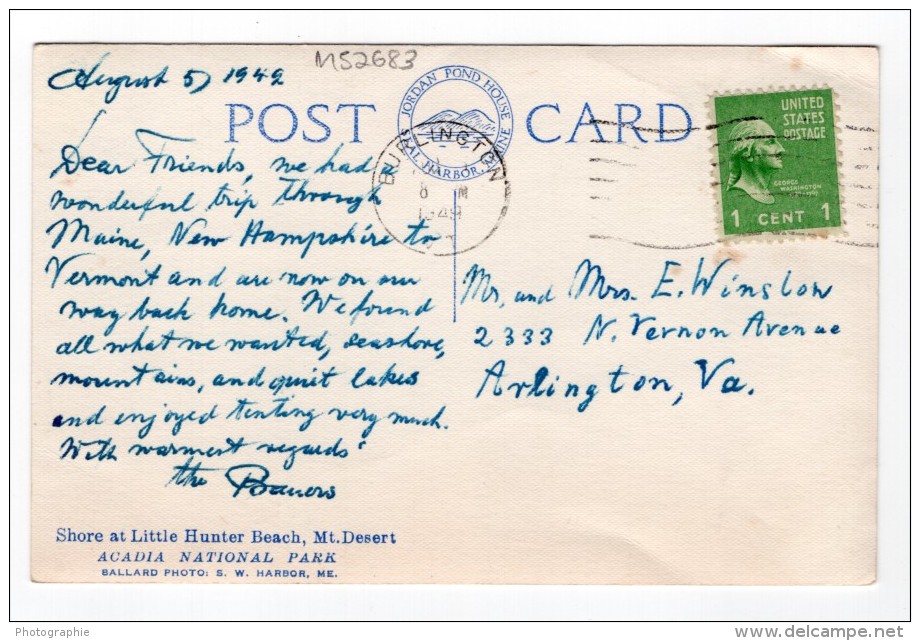 MS2683
August 5, 1949
POST CARD
JORDAN POND HOUSE
HARBOR, MAINE
BURLINGTON
8 M
1949
UNITED
STATES
POSTAGE
GEORGE
WASHINGTON
1 CENT 1
Dear Friends, we had a
wonderful trip through
Maine, New Hampshire to
Vermont and are now on our
way back home. We found
all what we wanted, seashore,
mountains, and quiet lakes
and enjoyed tenting very much.
With warmest regards
the Bauers
Mr. and Mrs. E. Winslow
2333 N. Vernon Avenue
Arlington, Va.
Shore at Little Hunter Beach, Mt. Desert
ACADIA NATIONAL PARK
BALLARD PHOTO: S. W. HARBOR, ME.
Photographie
www.delcampe.net